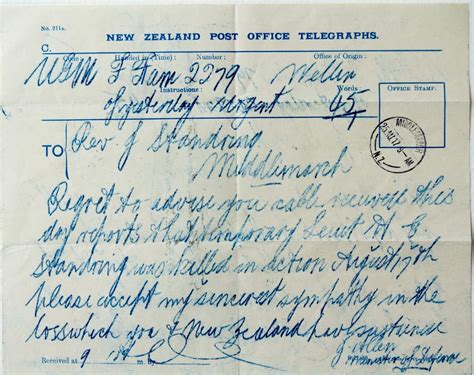 No. 211a.
NEW ZEALAND POST OFFICE TELEGRAPHS.
C.
Name: Handed in (Time): Number: Office of Origin:
2279 Wellin
Instructions: Words:
yesterday urgent 45
OFFICE STAMP.
TO Rev. J Standring
Middlemarch
MIDDLEMARCH
N.Z.
Regret to advise you cable received this
day reports that temporary Lieut W. E.
Standring was killed in action August 17th
please accept my sincerest sympathy in the
loss which you & New Zealand have sustained
J Allen
Minister of Defence
Received at 9 m. by